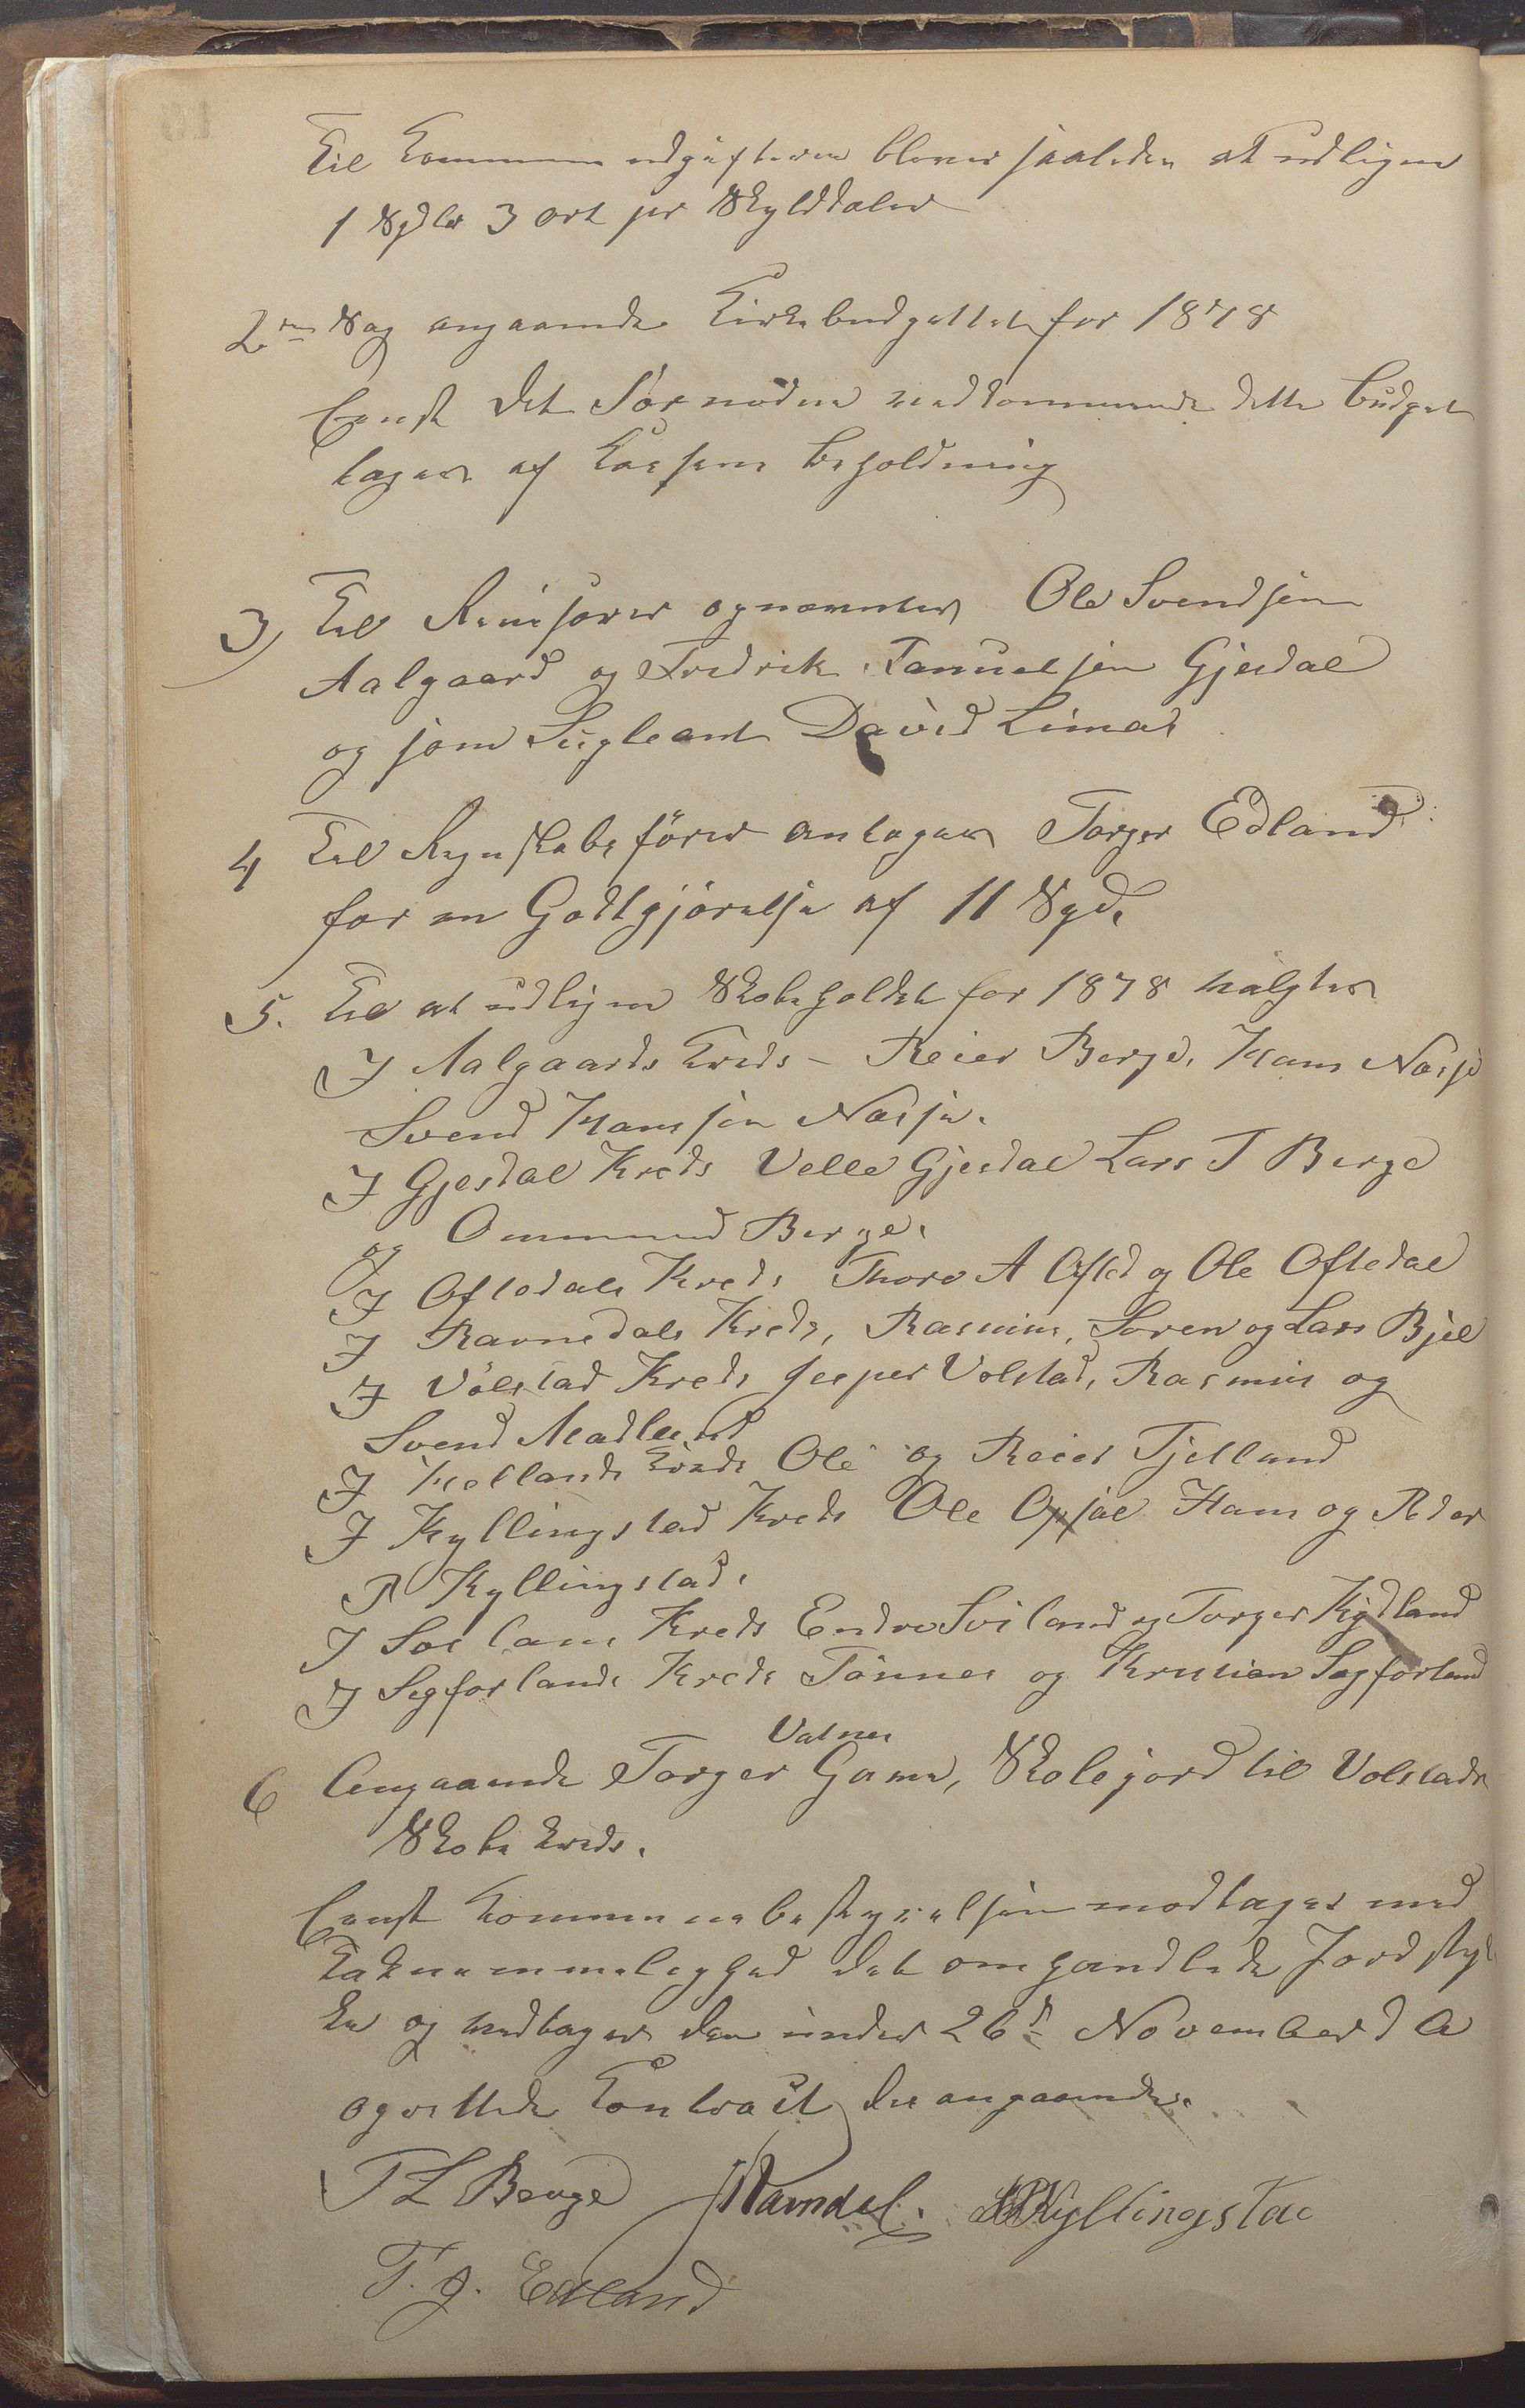 Til Kommuneudgifterne bliver saaledes at udligne
1 Spdlr 3 ort pr Skylddaler
2den Sag angaaende Kirkebudgettet for 1878
Besl: Det Fornødne vedkommende dette Budget
tages af Kassens Beholdning
3) Til Revisorer opnævntes Ole Svendsen
Aalgaard og Fredrik Samuelsen Gjesdal
og som Supleant David Limas
4 Til Regnskabsfører antages Torger Edland
for en Godtgjørelse af 11 Spd.
5. Til at udligne Skoleholdet for 1878 valgtes
I Aalgaards Kreds – Reier Berge, Hans Næsse
Svend Hansen Næsse.
I Gjesdal Kreds Velle Gjesdal Lars T Berge
og Ommund Berge.
I Oftedals Kreds Thore A Ofted og Ole Oftedal
I Ravnedals Kreds, Rasmus, Soren og Lars Bjel
I Vølstad Kreds Jesper Volstad, Rasmus og
Svend Madland
I Kreds Ole og Reier Tjelland
I Kyllingstad Kreds Ole Opsal Hans og Peder
P Kyllingstad.
I Kreds Endre Sviland og Torger Kydland
I Segforlands Kreds Tønnes og Kristian Segforland
Vatnes
6 Angaaende Torger Gave, Skolejord til Volstads
Skole Kreds.
Besl: Kommunebestyrelsen modtager med
Taknemmelighed det omhandlede Jordstyk
ke og vedtager den under 26de November d A
oprettede Kontrakt desangaaende.
T L Berge Ravndal. Kyllingstad
T. J. Edland